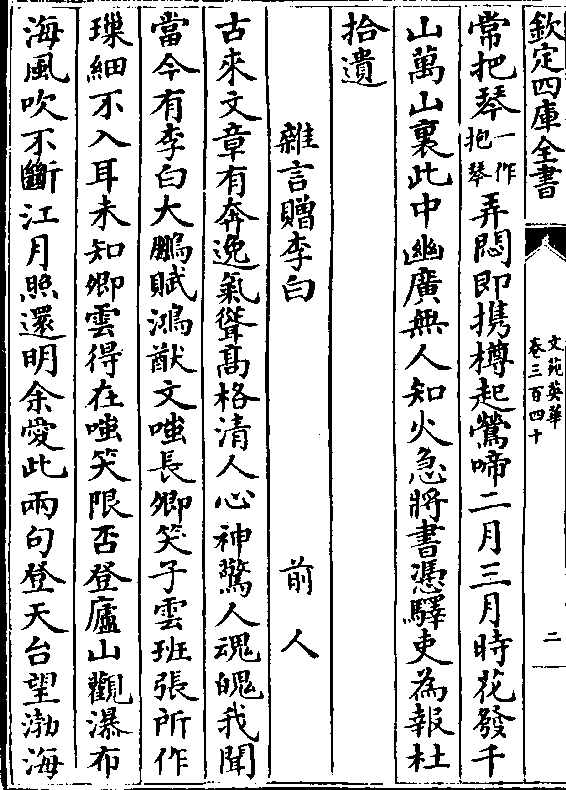 欽定四庫全書
文苑英華
卷三百四十
二
常把琴一作抱琴弄悶即携樽起鶯啼二月三月時花發千
山萬山裏此中幽廣無人知火急將書憑驛吏為報杜
拾遺
雜言贈李白 前人
古來文章有奔逸氣聳高格清人心神驚人魂魄我聞
當今有李白大鵬賦鴻猷文嗤長卿笑子雲班張所作
瑣細不入耳未知卿雲得在嗤笑限否登廬山觀瀑布
海風吹不斷江月照還明余愛此兩句登天台望渤海